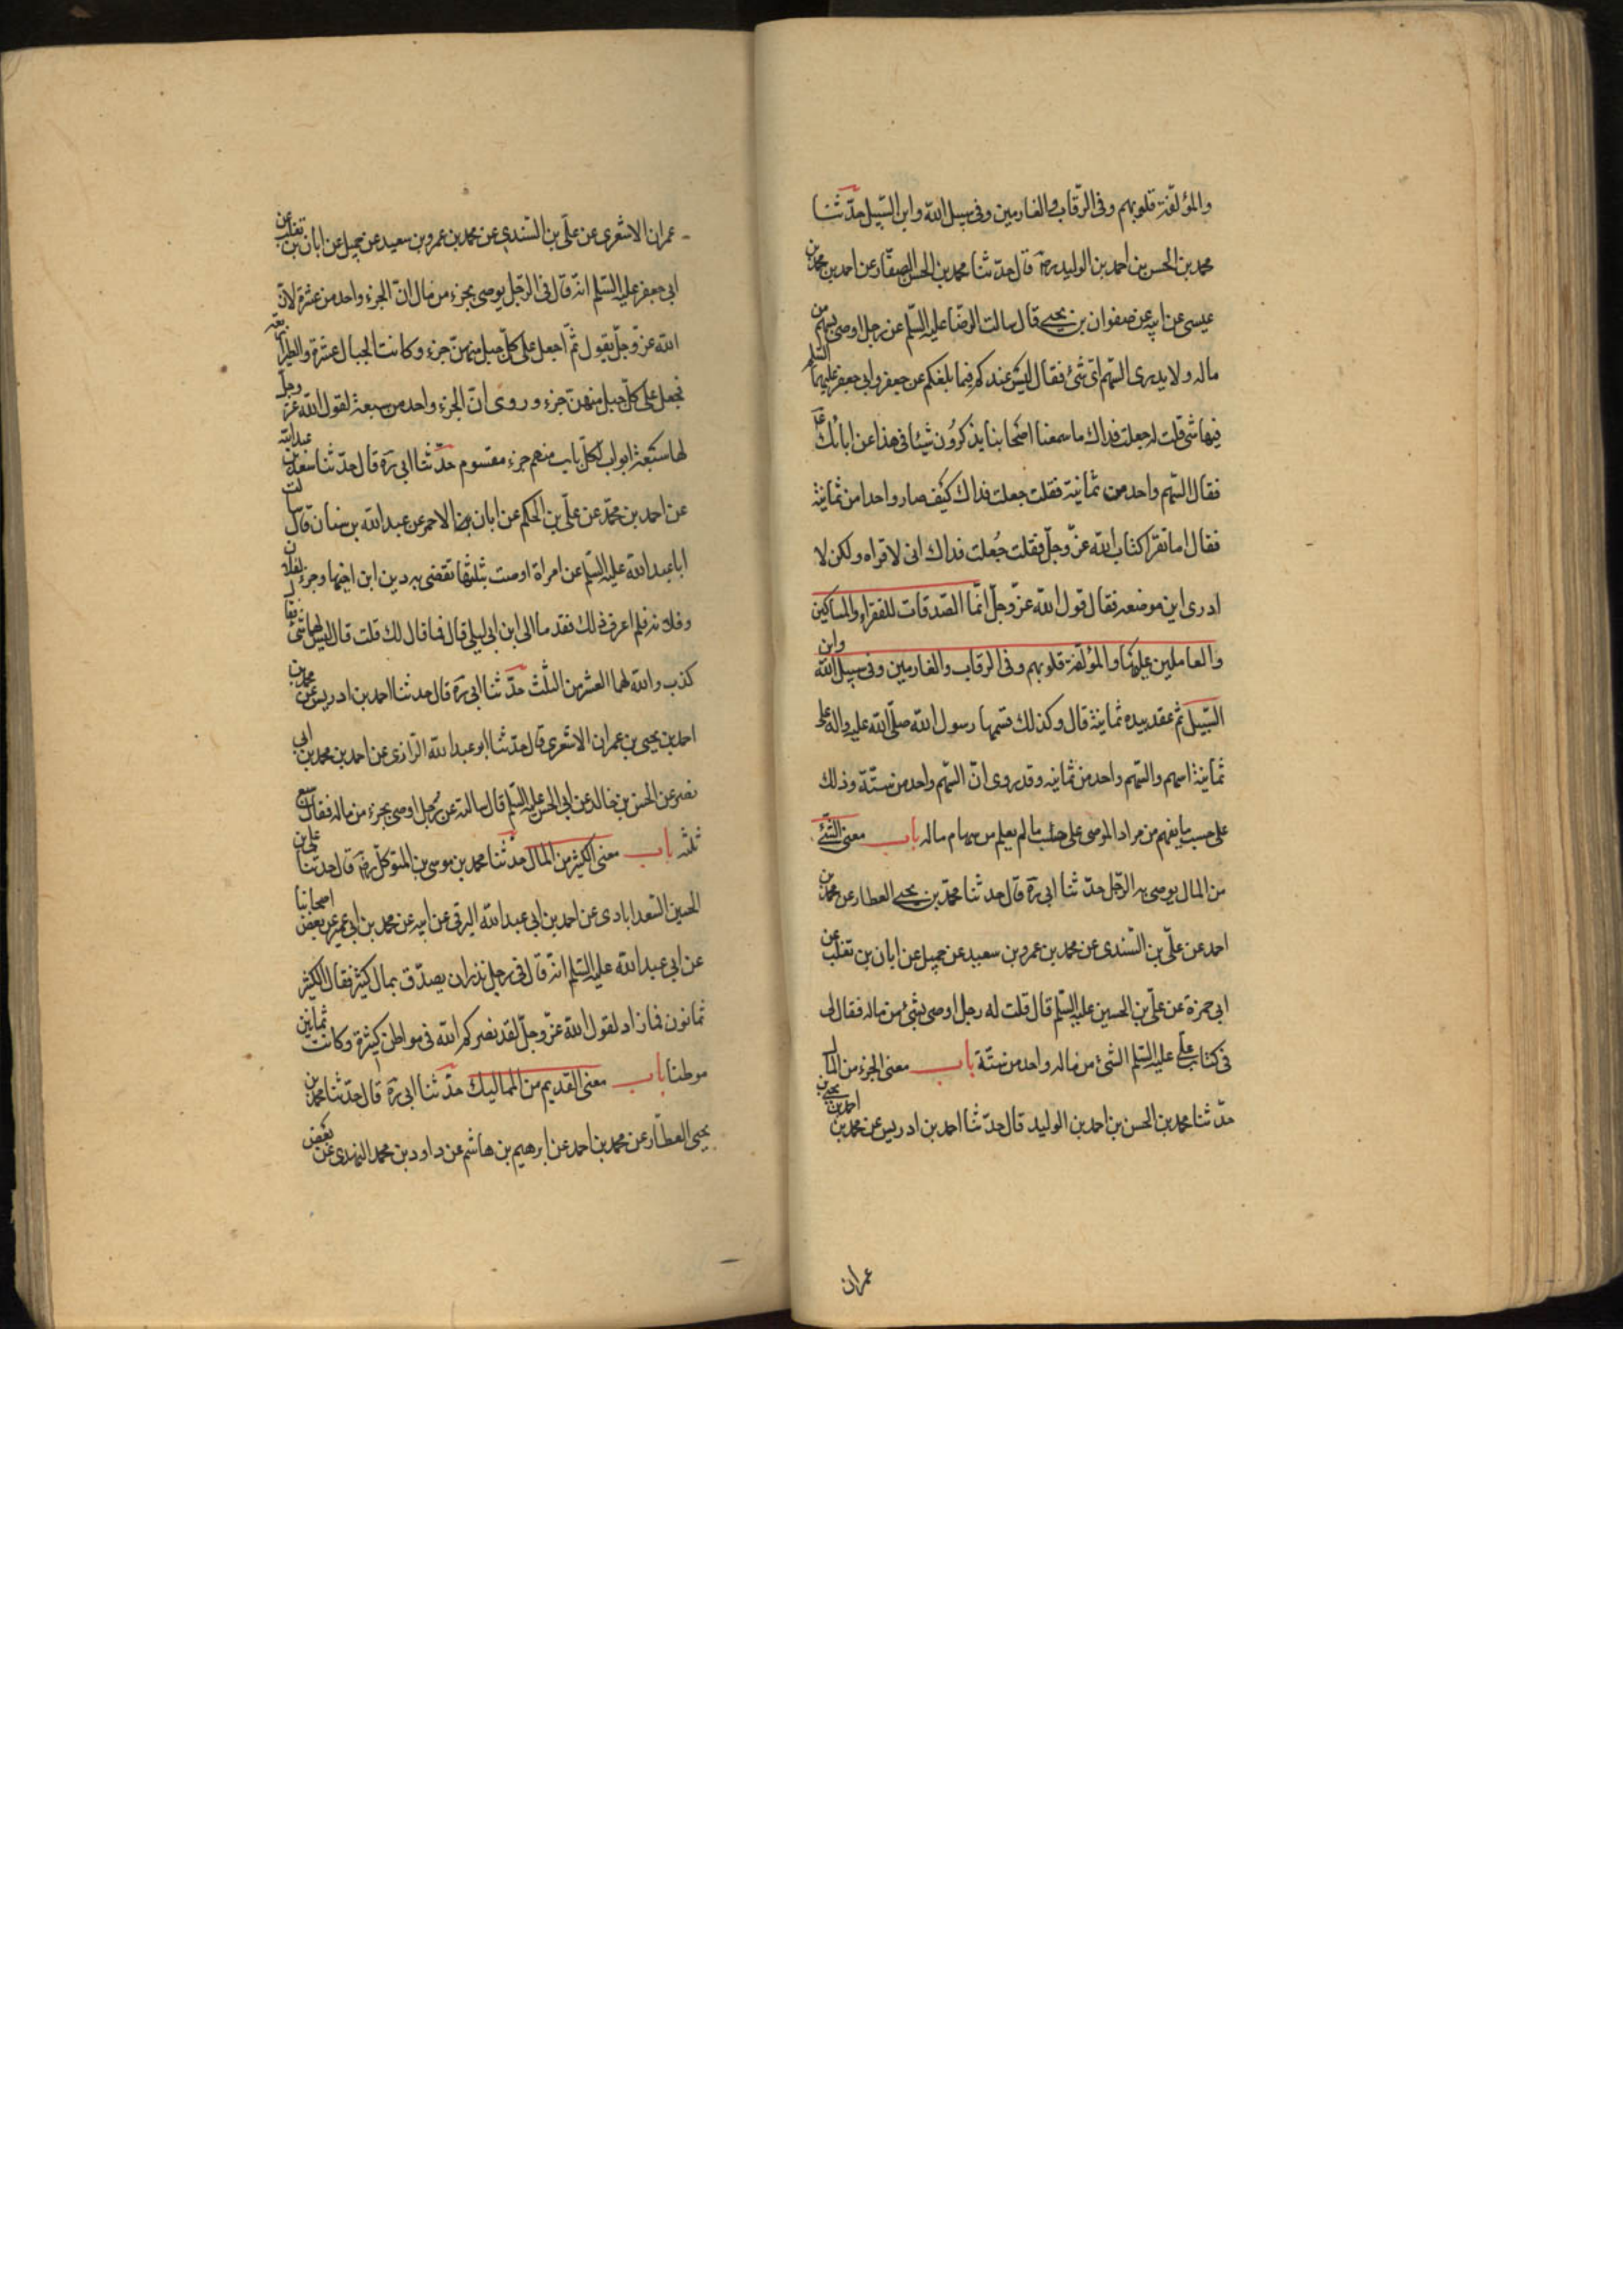 والمؤلّفة قلوبهم وفى الرّقاب والغارمين وفى سبيل الله وابن السّبيل حدّثنا
محمد بن الحسن بن احمد بن الوليد ره قال حدّثنا محمد بن الحسن الصفّار عن احمد بن محمد بن
عيسى عن ابيه عن صفوان بن يحيى قال سالت الرضا عليه السّلم عن رجل اوصى بسهم من
ماله ولا يدرى السّهم اىّ شئ فقال اليس عندكم فيما بلغكم عن جعفر وابى جعفر عليهما السّلم
فيها شئ قلت له جعلت فداك ما سمعنا اصحابنا يذكرون شيئا فى هذا عن ابائك ع
فقال السّهم واحد من ثمانية فقلت جعلت فداك كيف صار واحدا من ثمانية
فقال اما تقرا كتاب الله عزّ وجلّ فقلت جُعلت فداك انى لاقراه ولكن لا
ادرى اين موضعه فقال قول الله عزّ وجلّ انّما الصّدقات للفقراء والمساكين
والعاملين عليها والمؤلّفة قلوبهم وفى الرقاب والغارمين وفى سبيل الله وابن
السّبيل ثم عقد بيده ثمانية قال وكذلك قسمها رسول الله صلّى الله عليه واله على
ثمانية اسهم والسّهم واحد من ثمانيه وقد روى انّ السّهم واحد من ستّة وذلك
على حسب ما يفهم من مراد الموصى على حسب ما لم يعلم من سهام ماله باب معنى الشّئ
من المال يوصى به الرّجل حدّثنا ابى ره قال حدثنا محمّد بن يحيى العطار عن محمد بن
احمد عن علّى بن السّندى عن محمد بن عمرو بن سعيد عن جميل عن ابان بن تغلب عن
ابى حمزة عن علّى بن الحسين عليه السّلم قال قلت له رجل اوصى بشئ من ماله فقال لى
فى كتاب علّى عليه السّلم الشئ من ماله واحد من ستّة باب معنى الجزء من المال
حدّثنا محمد بن الحسن بن احمد بن الوليد قال حدّثنا احمد بن ادريس عن محمد بن احمد بن يحيى بن
عمران
عمران الاشعرى عن علّى بن السّندى عن محمد بن عمرو بن سعيد عن جميل عن ابان بن تغلب عن
ابى جعفر عليه السّلم انه قال فى الرّجل يوصى بجزء من مال انّ الجزء واحد من عشرة لانّ
الله عزّ وجلّ يقول ثمّ اجعل على كلّ جبل منهنّ جزء وكانت الجبال عشرة والطير اربعه
فجعل على كلّ جبل منهن جزء وروى انّ الجزء واحد من سبعة لقول الله عز وجلّ
لها سبعة ابواب لكلّ باب منهم جزء مقسوم حدّثنا ابى ره قال حدّثنا سعد بن عبد الله
عن احمد بن محمّد عن علّى بن الحكم عن ابان الاحمر عن عبد الله بن سنان قال سالت
ابا عبد الله عليه السّلم عن امراة اوصت بثلثها تقضى به دين ابن اخيها وجزء لفلان
وفلانه فلم اعرف ذلك فقدمنا الى ابن ابى ليلى قال فما قال لك قلت قال ليس لهما شئ فقال
كذب والله لهما العشر من الثلث حدّثنا ابى ره قال حدثنا احمد بن ادريس عن محمد بن
احمد بن يحيى بن عمران الاشعرى قال حدّثنا ابو عبد الله الرّازى عن احمد بن محمد بن ابى
نصر عن الحسن بن خالد عن ابى الحسن عليه السّلم قال سالته عن رجل اوصى بجزء من ماله فقال سبع
ثلثه باب معنى الكثير من المال حدّثنا محمد بن موسى بن المتوكّل ره قال حدثنا على بن
الحسين السّعدابادى عن احمد بن ابى عبد الله البرقى عن ابيه عن محمد بن ابى عمير عن بعض اصحابنا
عن ابى عبد الله عليه السّلم انّه قال فى رجل نذر ان يصدّق بمال كثير فقال الكثير
ثمانون فما زاد لقول الله عزّ وجلّ لقد نصركم الله فى مواطن كثيرة وكانت ثمانين
موطنا باب معنى القديم من المماليك حدّثنا ابى ره قال حدّثنا محمد بن
يحيى العطّار عن محمد بن احمد عن ابرهيم بن هاشم عن داود بن محمد النهدى عن بعض